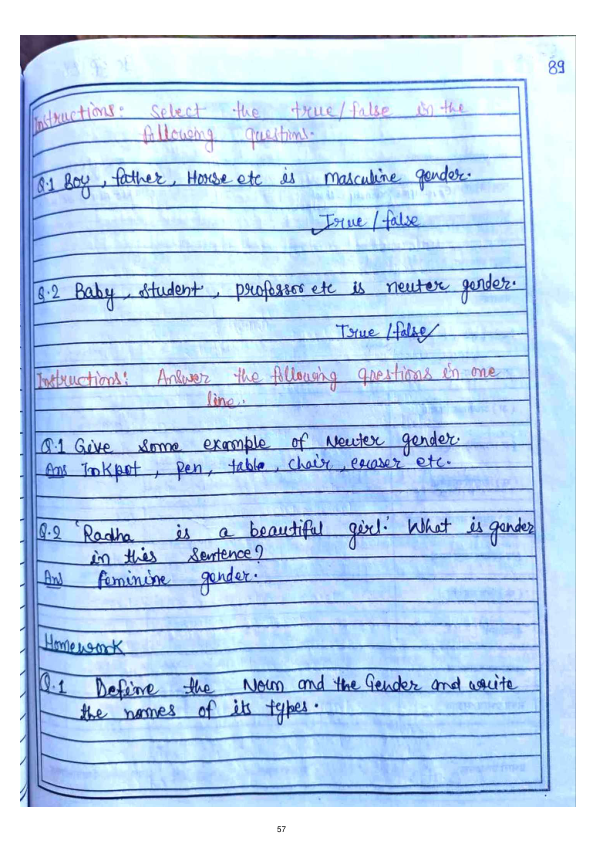 89
Instructions: Select the true/false in the
following questions.
Q.1 Boy, father, Horse etc is masculine gender.
True / false
Q.2 Baby, student, professor etc is neuter gender.
True / false
Instructions: Answer the following questions in one
line..
Q.1 Give some example of Neuter gender.
Ans Inkpot, pen, table, chair, eraser etc.
Q.2 'Radha is a beautiful girl.' What is gender
in this sentence?
Ans feminine gender.
Homework
Q.1 Define the Noun and the Gender and write
the names of its types.
57